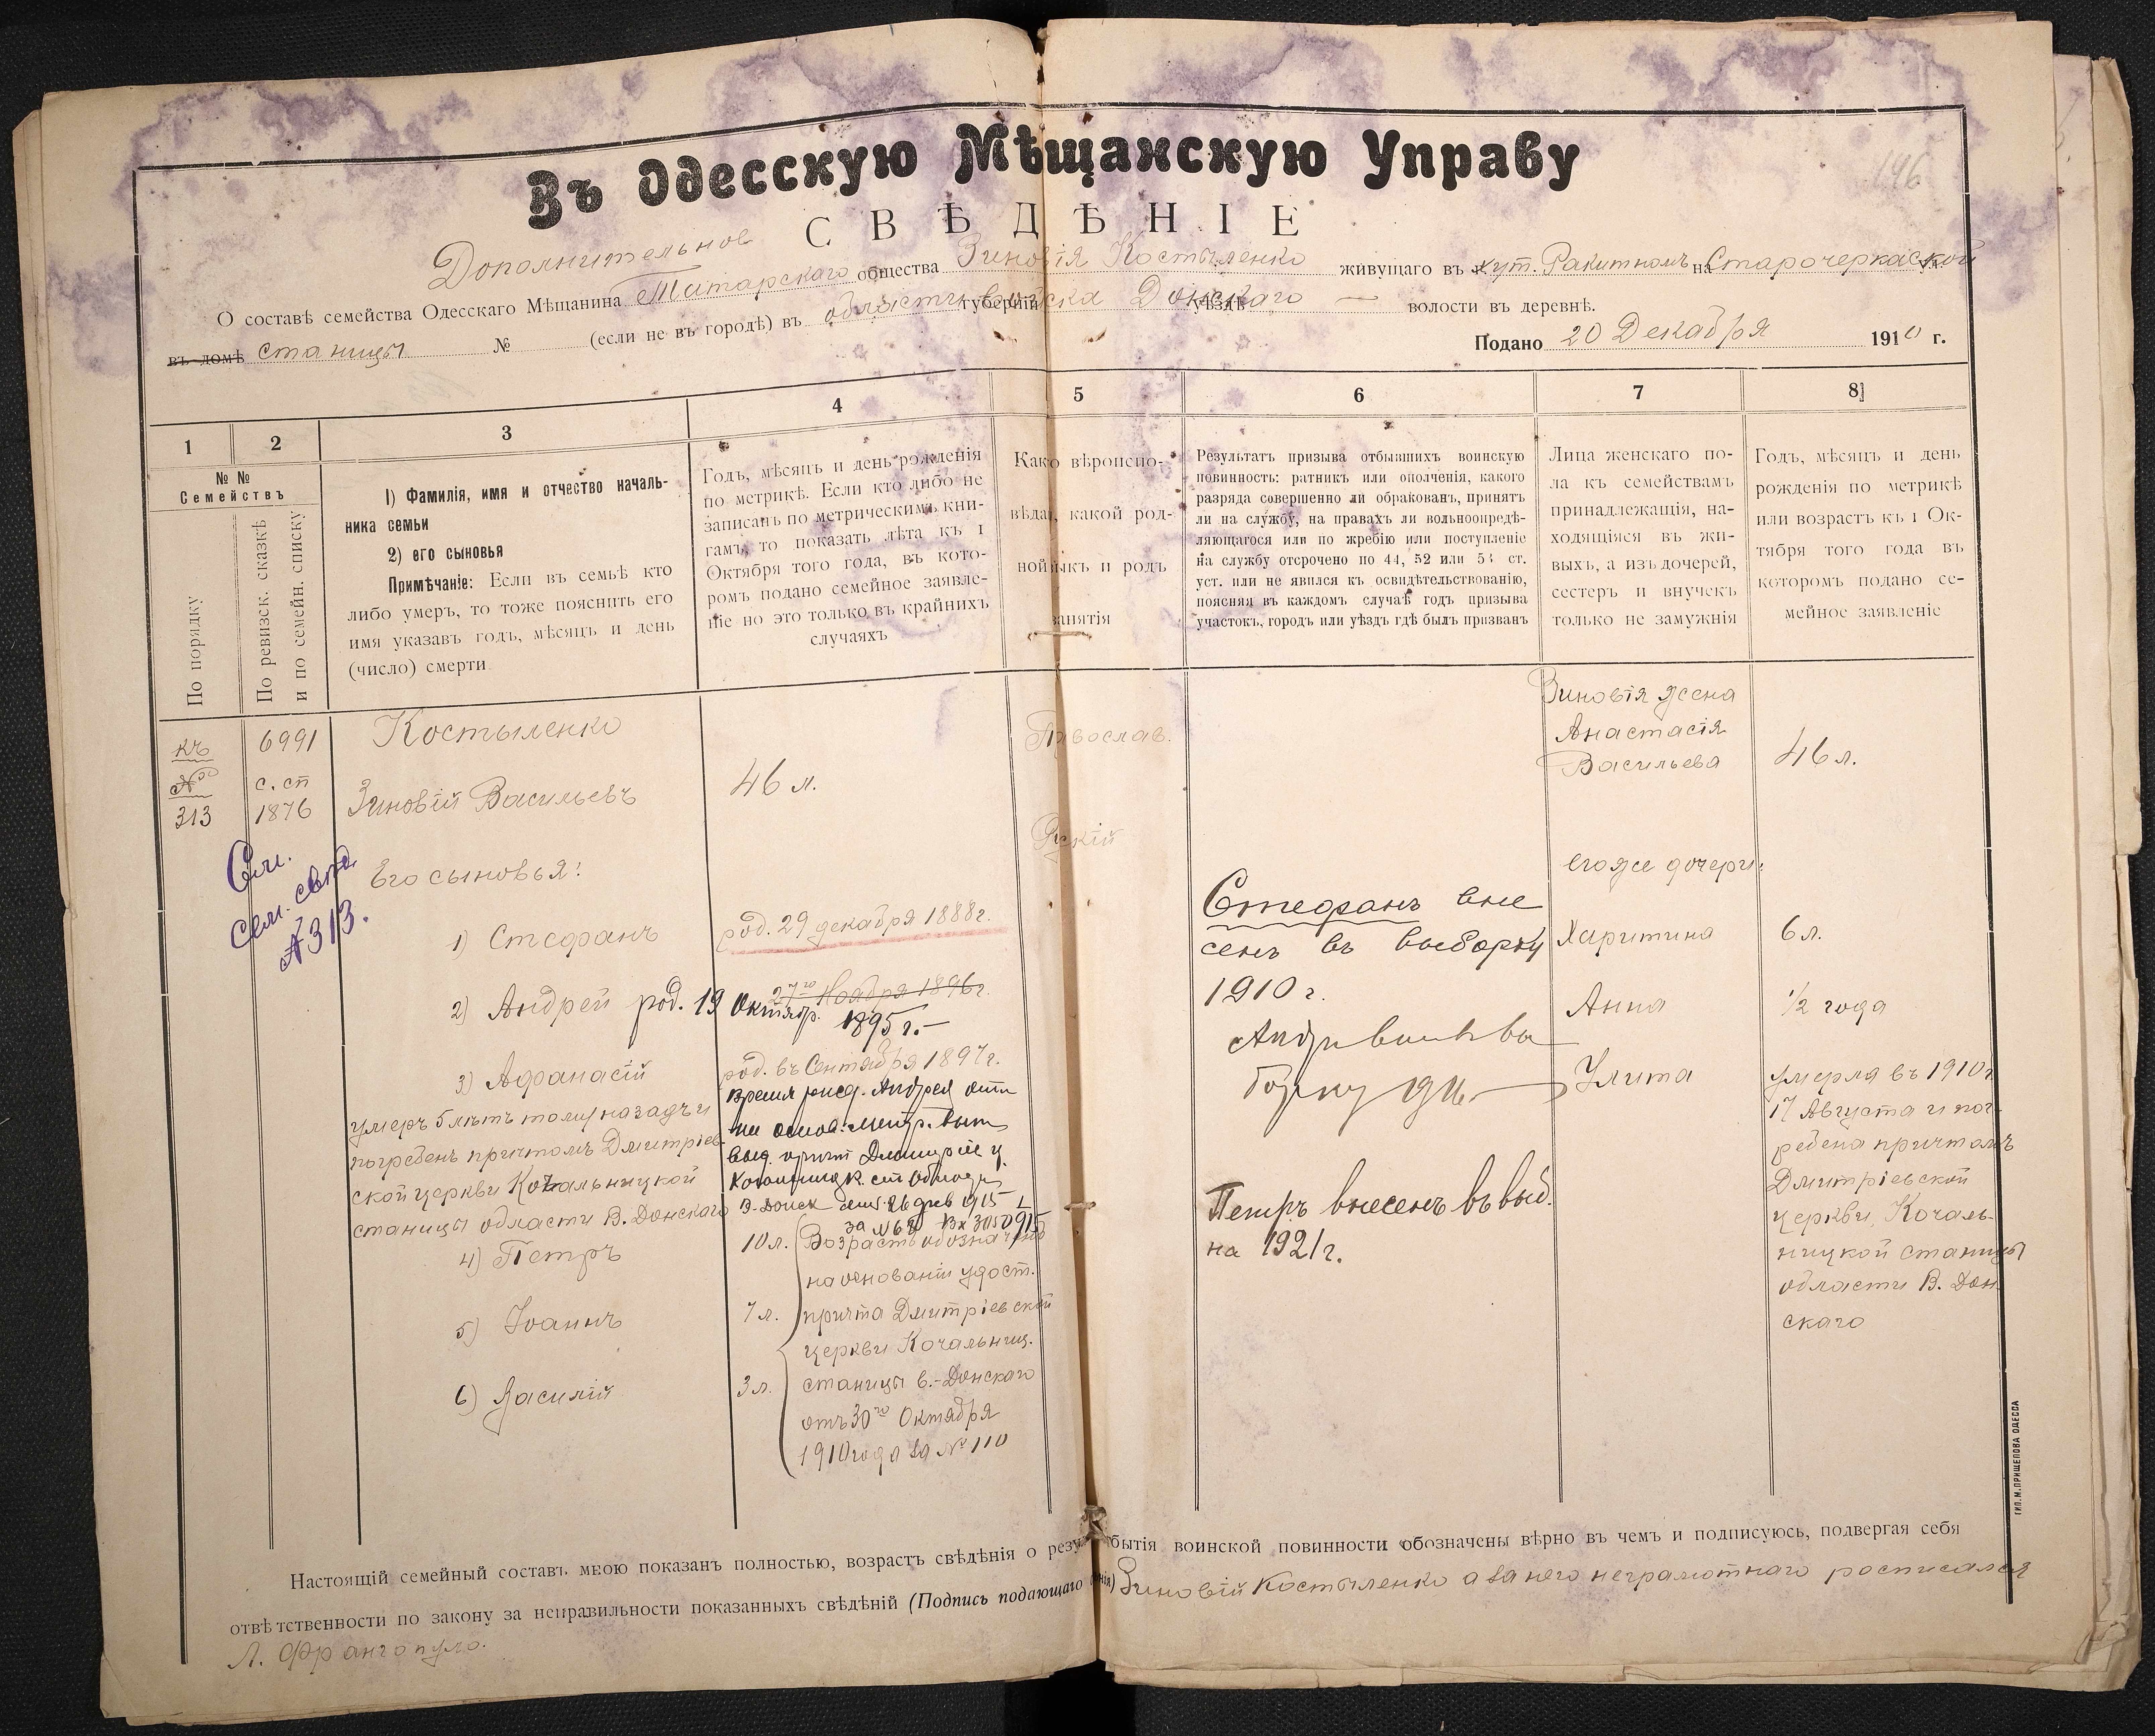 146
Въ Одесскую Мѣщанскую Управу
СВѢДѢНІЕ
Дополнительное
О составѣ семейства Одесскаго Мѣщанина Татарскаго общества Зиновія Костыленко живущаго въ хут. Ракитномъ на Старочеркаской
въ домѣ станицы № (если не въ городѣ) въ области Войска Донскаго губерніи уѣзда — волости въ деревнѣ.
Подано 20 Декабря 1910 г.
1 2 3 4 5 6 7 8
№ №
Семействъ
По порядку
По ревизск. сказкѣ
и по семейн. списку
1) Фамилія, имя и отчество началь-
ника семьи
2) его сыновья
Примѣчаніе: Если въ семьѣ кто
либо умеръ, то тоже пояснить его
имя указавъ годъ, мѣсяцъ и день
(число) смерти
Годъ, мѣсяцъ и день рожденія
по метрикѣ. Если кто либо не
записанъ по метрическимъ кни-
гамъ, то показать лѣта къ 1
Октября того года, въ кото-
ромъ подано семейное заявле-
ніе но это только въ крайнихъ
случаяхъ
Како вѣроиспо-
вѣда, какой род-
ной зыкъ и родъ
занятія
Результатъ призыва отбывшихъ воинскую
повинность: ратникъ или ополченія, какого
разряда совершенно ли обракованъ, принятъ
ли на службу, на правахъ ли вольноопредѣ-
ляющагося или по жребію или поступленіе
на службу отсрочено по 44, 52 или 53 ст.
уст. или не явился къ освидѣтельствованію,
поясняя въ каждомъ случаѣ годъ призыва
участокъ, городъ или уѣздъ гдѣ былъ призванъ
Лица женскаго по-
ла къ семействамъ
принадлежащія, на-
ходящіяся въ жи-
выхъ, а изъ дочерей,
сестеръ и внучекъ
только не замужнія
Годъ, мѣсяцъ и день
рожденія по метрикѣ
или возрастъ къ 1 Ок-
тября того года въ
которомъ подано се-
мейное заявленіе
къ
№
313
6991
с. сп
1876
См.
сем. свѣд.
№ 313.
Костыленко
Зиновій Васильевъ
46 л.
Православ.
Рускій
Зиновія жена
Анастасія
Васильева
46 л.
Его сыновья:
1) Стефанъ
род. 29 декабря 1888 г.
2) Андрей род. 19 Октябр. 1895 г. —
27го Ноября 1896 г.
3) Афанасій
род. въ Сентября 1897 г.
умеръ 5 лѣтъ тому назадъ и
погребенъ причтомъ Дмитріев-
ской церкви Кочальницкой
станицы области В. Донскаго
Время рожд. Андрея
на основ. метр.
выд. причт Дмитріе ц.
В. Донск 26 1915
за № 62 Вх 3050 915
4) Петръ
10 л.
5) Іоаннъ
7 л.
6) Василій
3 л.
Возрастъ обозначенъ
на основаніи удост.
причта Дмитріевской
церкви Кочальниц.
станицы в.-Донскаго
отъ 30го Октября
1910 года за № 110
Стефанъ вне
сенъ въ выборку
1910 г.
Петръ внесенъ въ выб.
на 1921 г.
его же дочери:
Харитина
6 л.
Анна
½ года
Улита
умерла въ 1910 г.
17 Августа и пог-
ребена причтомъ
Дмитріевской
церкви Кочаль-
ницкой станицы
области В. Дон
скаго
Настоящій семейный составъ мною показанъ полностью, возрастъ свѣдѣнія о резу бытія воинской повинности обозначены вѣрно въ чемъ и подписуюсь, подвергая себя
отвѣтственности по закону за неправильности показанныхъ свѣдѣній (Подпись подающаго нія) Зиновій Костыленко а за него неграмотнаго росписался
Л. Франгопуло.
ТИП. М. ПРИЩЕПОВА ОДЕССА